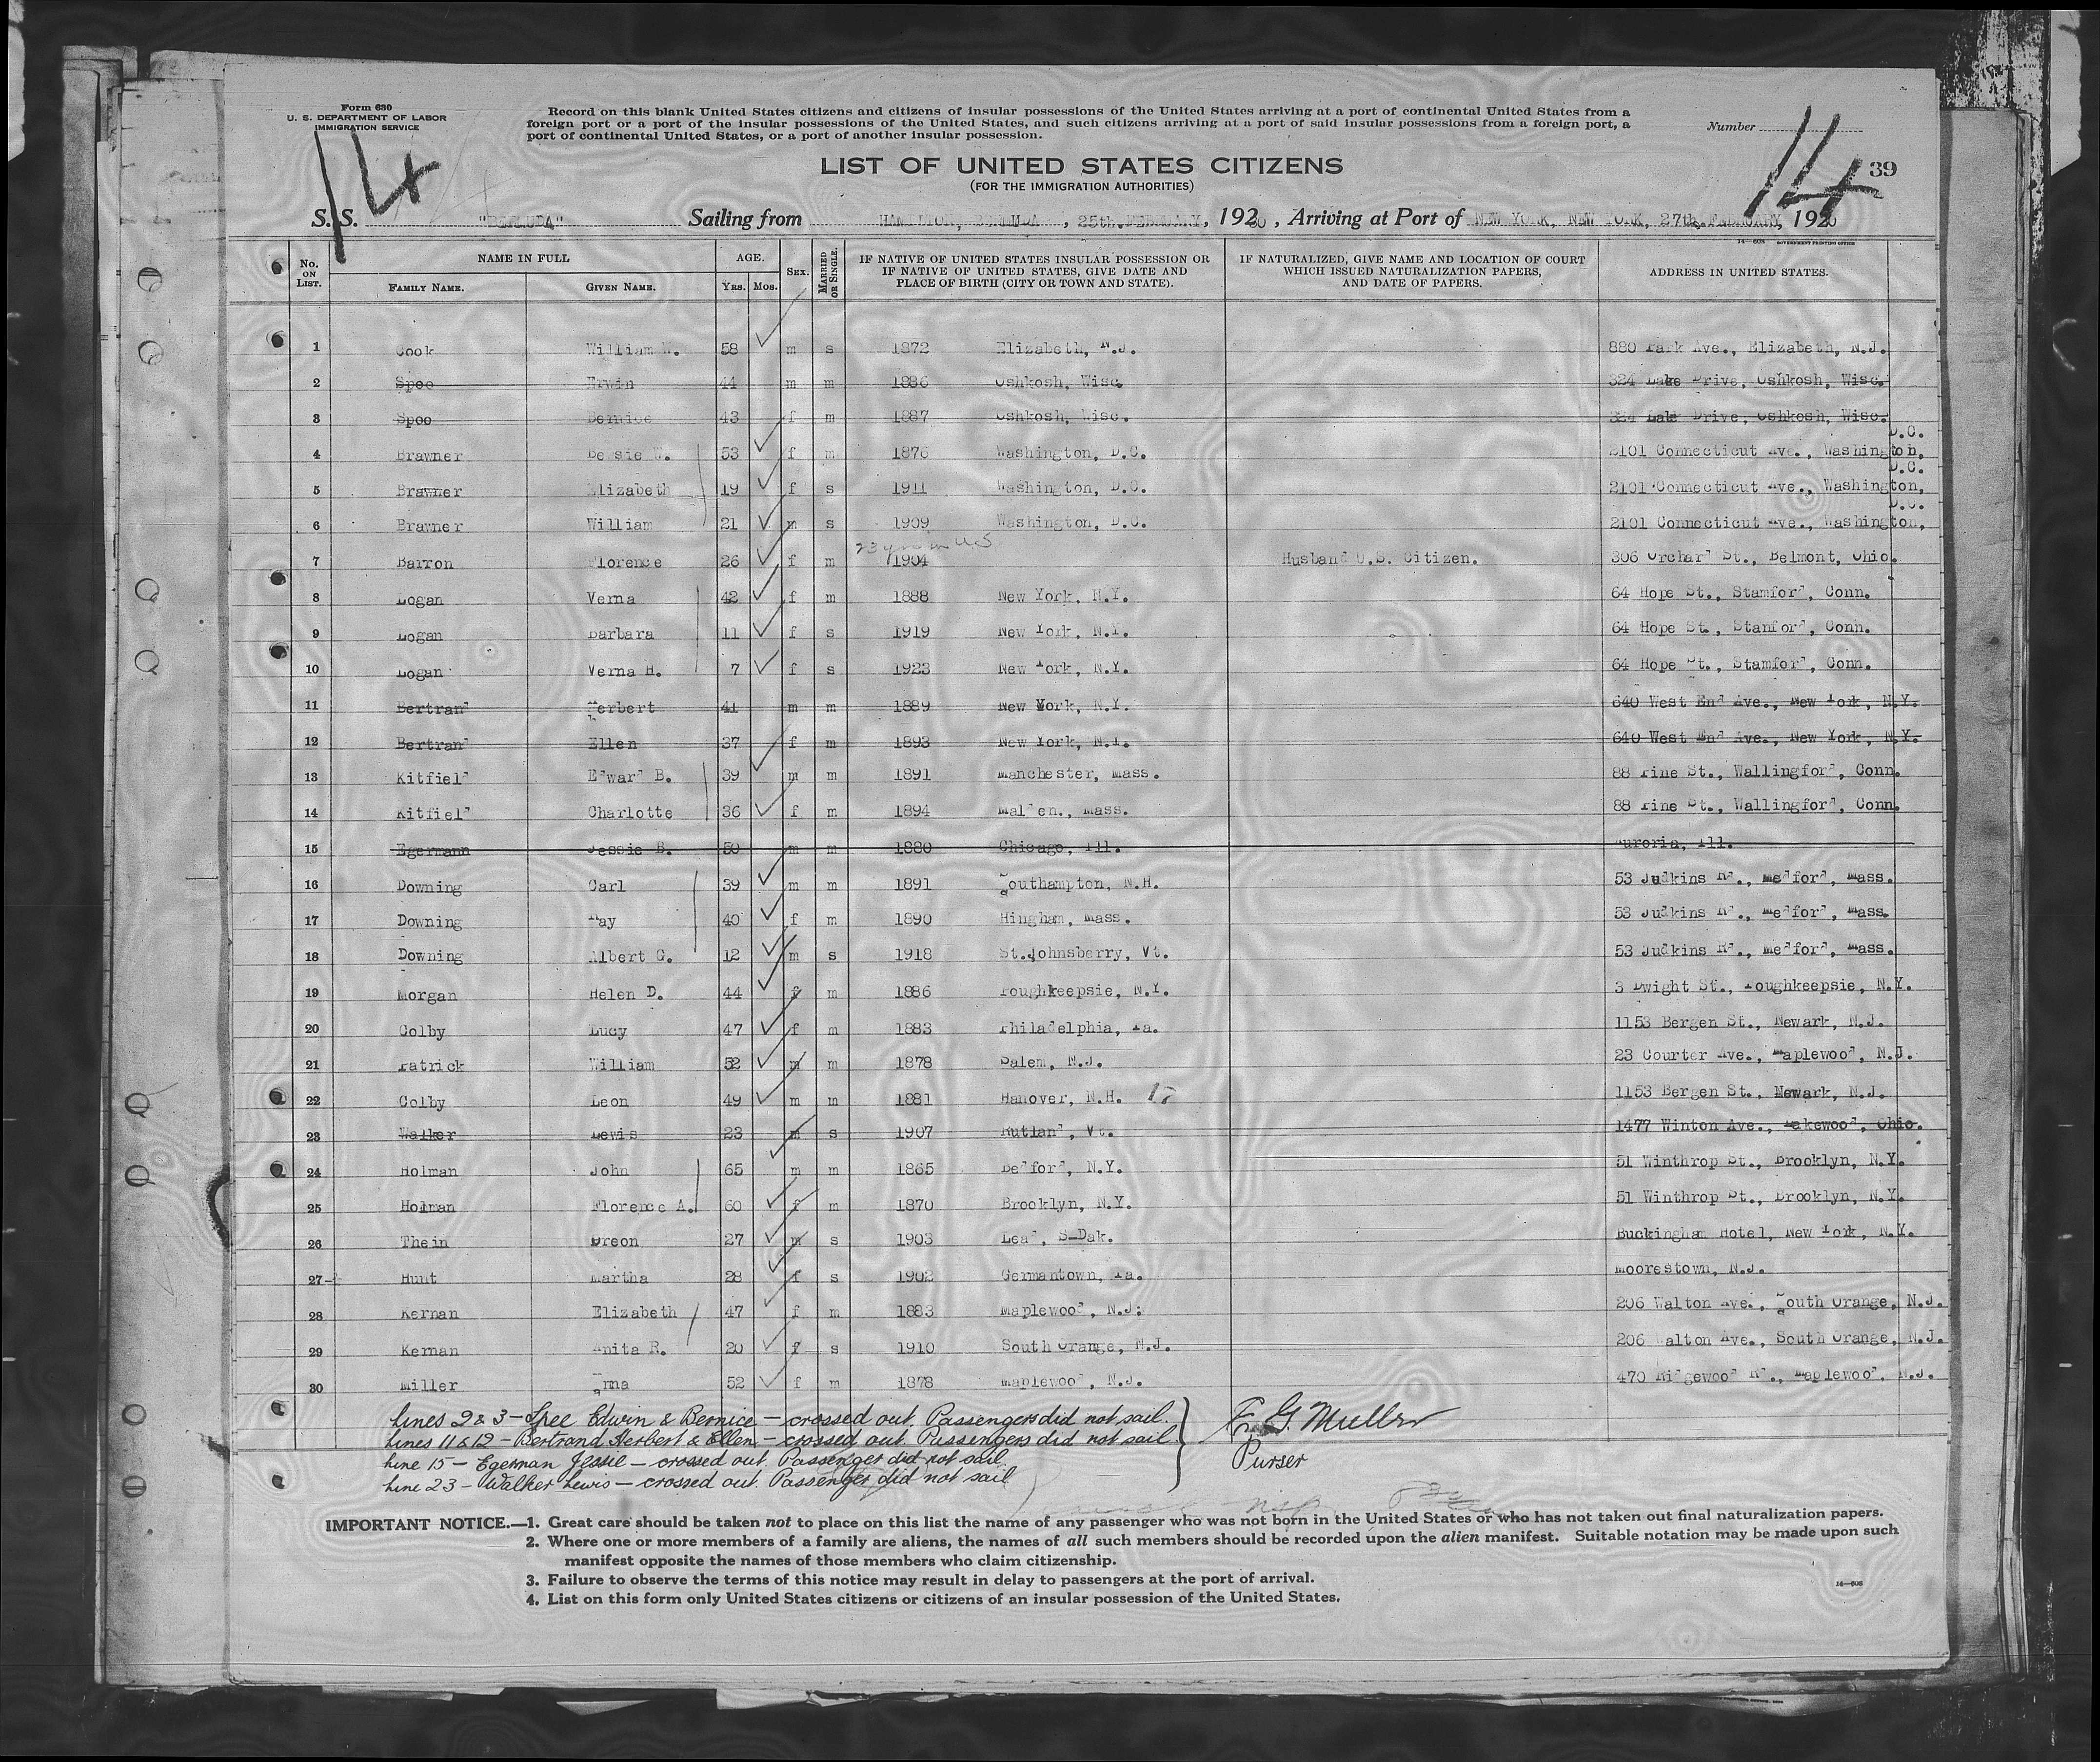 Form 630
U. S. DEPARTMENT OF LABOR
IMMIGRATION SERVICE
Record on this blank United States citizens and citizens of insular possessions of the United States arriving at a port of continental United States from a
foreign port or a port of the insular possessions of the United States, and such citizens arriving at a port of said insular possessions from a foreign port, a
port of continental United States, or a port of another insular possession.
Number
14
14
39
LIST OF UNITED STATES CITIZENS
(FOR THE IMMIGRATION AUTHORITIES)
S. S. "BERMUDA" Sailing from HAMILTON, BERMUDA, 25th. FEBRUARY, 1930, Arriving at Port of NEW YORK, NEW YORK, 27th. FEBRUARY, 1930
14—608 GOVERNMENT PRINTING OFFICE
No. ON LIST. NAME IN FULL FAMILY NAME. GIVEN NAME. AGE. YRS. MOS. SEX. MARRIED OR SINGLE. IF NATIVE OF UNITED STATES INSULAR POSSESSION OR IF NATIVE OF UNITED STATES, GIVE DATE AND PLACE OF BIRTH (CITY OR TOWN AND STATE). IF NATURALIZED, GIVE NAME AND LOCATION OF COURT WHICH ISSUED NATURALIZATION PAPERS, AND DATE OF PAPERS. ADDRESS IN UNITED STATES.
1 Cook William W. 58 m s 1872 Elizabeth, N.J. 880 Park Ave., Elizabeth, N.J.
2 Spoo Erwin 44 m m 1886 Oshkosh, Wisc. 324 Lake Drive, Oshkosh, Wisc.
3 Spoo Bernice 43 f m 1887 Oshkosh, Wisc. 324 Lake Drive, Oshkosh, Wisc.
4 Brawner Bessie W. 53 f m 1876 Washington, D.C. 2101 Connecticut Ave., Washington, D.C.
5 Brawner Elizabeth 19 f s 1911 Washington, D.C. 2101 Connecticut Ave., Washington, D.C.
6 Brawner William 21 m s 1909 Washington, D.C. 2101 Connecticut Ave., Washington, D.C.
23 yrs in US
7 Barron Florence 26 f m 1904 Husband U.S. Citizen. 306 Orchard St., Belmont, Ohio.
8 Logan Verna 42 f m 1888 New York, N.Y. 64 Hope St., Stamford, Conn.
9 Logan Barbara 11 f s 1919 New York, N.Y. 64 Hope St., Stamford, Conn.
10 Logan Verna H. 7 f s 1923 New York, N.Y. 64 Hope St., Stamford, Conn.
11 Bertrand Herbert 41 m m 1889 New York, N.Y. 640 West End Ave., New York, N.Y.
12 Bertrand Ellen 37 f m 1893 New York, N.Y. 640 West End Ave., New York, N.Y.
13 Kitfield Edward B. 39 m m 1891 Manchester, Mass. 88 Pine St., Wallingford, Conn.
14 Kitfield Charlotte 36 f m 1894 Malden., Mass. 88 Pine St., Wallingford, Conn.
15 Egermann Jessie B. 50 m m 1880 Chicago, Ill. Auroria, Ill.
16 Downing Carl 39 m m 1891 Southampton, N.H. 53 Judkins Rd., Medford, Mass.
17 Downing May 40 f m 1890 Hingham, Mass. 53 Judkins Rd., Medford, Mass.
18 Downing Albert C. 12 m s 1918 St.Johnsberry, Vt. 53 Judkins Rd., Medford, Mass.
19 Morgan Helen D. 44 f m 1886 Poughkeepsie, N.Y. 3 Dwight St., Poughkeepsie, N.Y.
20 Colby Lucy 47 f m 1883 Philadelphia, Pa. 1153 Bergen St., Newark, N.J.
21 Patrick William 52 m m 1878 Salem, N.J. 23 Courter Ave., Maplewood, N.J.
22 Colby Leon 49 m m 1881 Hanover, N.H. 17 1153 Bergen St., Newark, N.J.
23 Walker Lewis 23 m s 1907 Rutland, Vt. 1477 Winton Ave., Lakewood, Ohio.
24 Holman John 65 m m 1865 Bedford, N.Y. 51 Winthrop St., Brooklyn, N.Y.
25 Holman Florence A. 60 f m 1870 Brooklyn, N.Y. 51 Winthrop St., Brooklyn, N.Y.
26 Thein Oreon 27 m s 1903 Lead, S-Dak. Buckingham Hotel, New York, N.Y.
27 Hunt Martha 28 f s 1902 Germantown, Pa. Moorestown, N.J.
28 Kernan Elizabeth 47 f m 1883 Maplewood, N.J. 206 Walton Ave., South Orange, N.J.
29 Kernan Anita R. 20 f s 1910 South Orange, N.J. 206 Walton Ave., South Orange, N.J.
30 Miller Irma 52 f m 1878 Maplewood, N.J. 470 Ridgewood Rd., Maplewood, N.J.
Lines 2 & 3 – Spee Edwin & Bernice – crossed out. Passengers did not sail.
Lines 11 & 12 – Bertrand Herbert & Ellen – crossed out. Passengers did not sail
Line 15 – Egerman Jessie – crossed out. Passenger did not sail
Line 23 – Walker Lewis – crossed out. Passenger did not sail
F. G. Muller
Purser
IMPORTANT NOTICE.—1. Great care should be taken not to place on this list the name of any passenger who was not born in the United States or who has not taken out final naturalization papers.
2. Where one or more members of a family are aliens, the names of all such members should be recorded upon the alien manifest. Suitable notation may be made upon such
manifest opposite the names of those members who claim citizenship.
3. Failure to observe the terms of this notice may result in delay to passengers at the port of arrival.
4. List on this form only United States citizens or citizens of an insular possession of the United States.
14—608